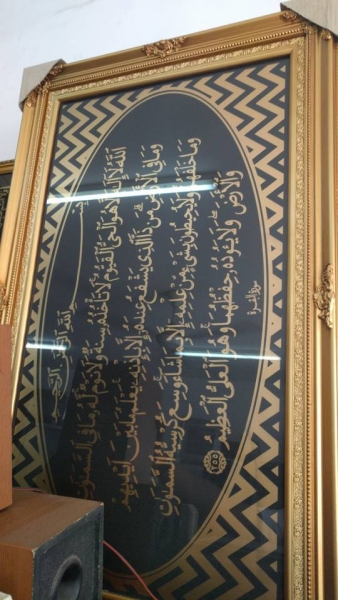 بِسْمِ اللَّهِ الرَّحْمَٰنِ الرَّحِيمِ
اللَّهُ لَا إِلَٰهَ إِلَّا هُوَ الْحَيُّ الْقَيُّومُ لَا تَأْخُذُهُ سِنَةٌ وَلَا نَوْمٌ لَهُ مَا فِي السَّمَٰوَٰتِ
وَمَا فِي الْأَرْضِ مَنْ ذَا الَّذِي يَشْفَعُ عِنْدَهُ إِلَّا بِإِذْنِهِ يَعْلَمُ مَا بَيْنَ أَيْدِيهِمْ
وَمَا خَلْفَهُمْ وَلَا يُحِيطُونَ بِشَيْءٍ مِنْ عِلْمِهِ إِلَّا بِمَا شَاءَ وَسِعَ كُرْسِيُّهُ السَّمَٰوَٰتِ
وَالْأَرْضَ وَلَا يَئُودُهُ حِفْظُهُمَا وَهُوَ الْعَلِيُّ الْعَظِيمُ ٢٥٥
سورة البقرة